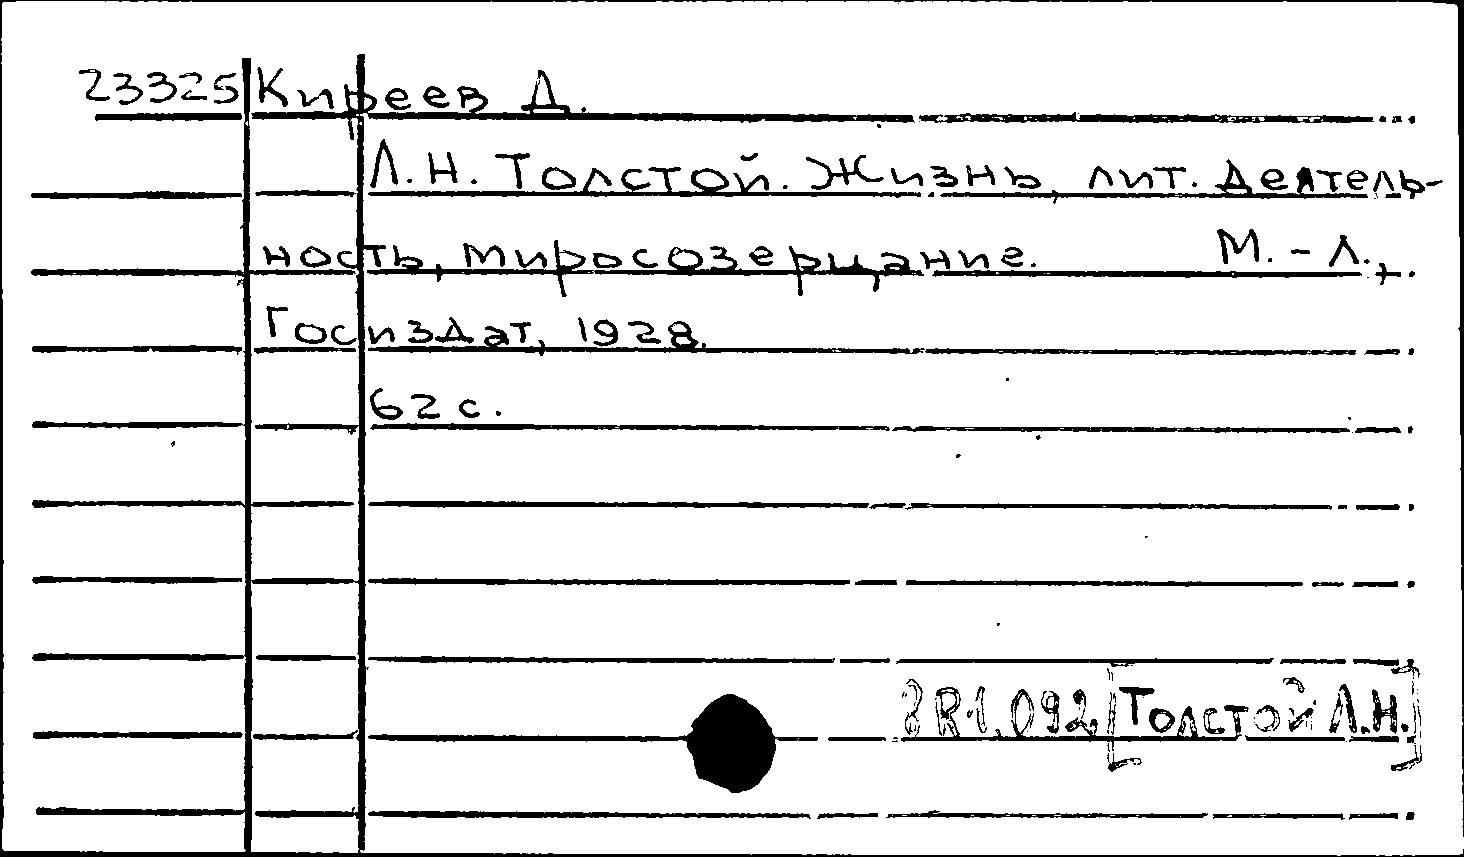 23325 Киреев Д.
Л.Н. Толстой. Жизнь, лит. деятель-
ность, миросозерцание. М.-Л.,
Госиздат, 1928.
62 с.
8R1.092 [Толстой Л.Н.]